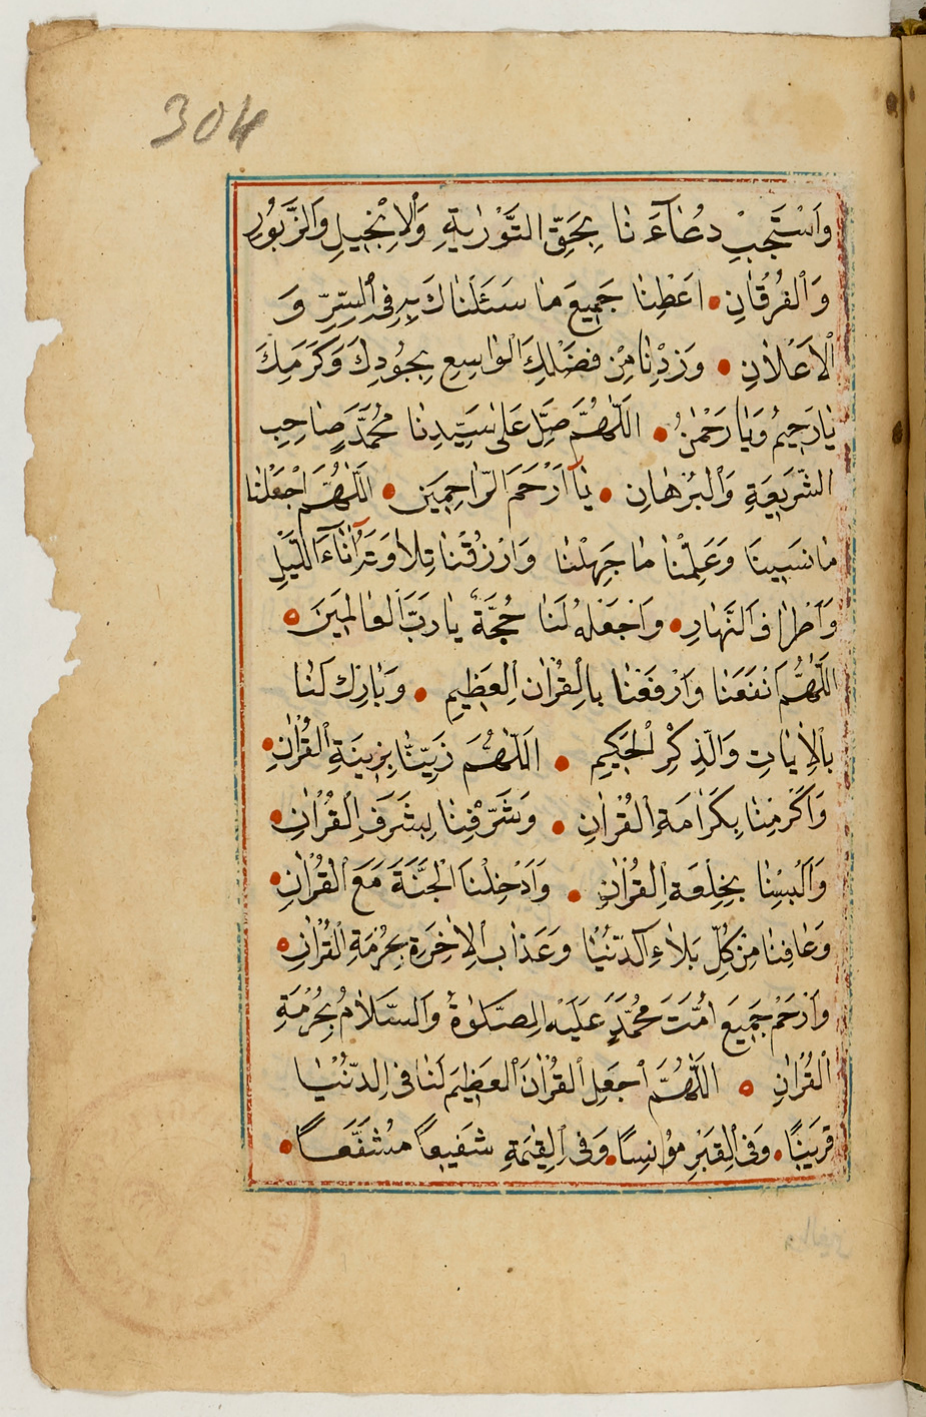 304
وَاسْتَجِبْ دُعَاءَنَا بِحَقِّ التَّوْرٰيةِ وَالْاِنْجِيلِ وَالزَّبُورِ
وَالْفُرْقَانِ اَعْطِنَا جَمِيعَ مَا سَئَلْنَاكَ بِهِ فِي السِّرِّ وَ
الْاَعْلَانِ وَزِدْنَا مِنْ فَضْلِكَ الْوَاسِعِ بِجُودِكَ وَكَرَمِكَ
يَا رَحِيمُ وَيَا رَحْمٰنُ اَللّٰهُمَّ صَلِّ عَلٰى سَيِّدِنَا مُحَمَّدٍ صَاحِبِ
الشَّرِيعَةِ وَالْبُرْهَانِ يَا اَرْحَمَ الرَّاحِمِينَ اَللّٰهُمَّ اجْعَلْنَا
مَا نَسِينَا وَعَلِّمْنَا مَا جَهِلْنَا وَارْزُقْنَا تِلَاوَتَهُ اٰنَاءَ اللَّيْلِ
وَاَطْرَافَ النَّهَارِ وَاجْعَلْهُ لَنَا حُجَّةً يَا رَبَّ الْعَالَمِينَ
اَللّٰهُمَّ انْفَعْنَا وَارْفَعْنَا بِالْقُرْاٰنِ الْعَظِيمِ وَبَارِكْ لَنَا
بِالْاٰيَاتِ وَالذِّكْرِ الْحَكِيمِ اَللّٰهُمَّ زَيِّنَّا بِزِينَةِ الْقُرْاٰنِ
وَاَكْرِمْنَا بِكَرَامَةِ الْقُرْاٰنِ وَشَرِّفْنَا بِشَرَفِ الْقُرْاٰنِ
وَاَلْبِسْنَا بِخِلْعَةِ الْقُرْاٰنِ وَاَدْخِلْنَا الْجَنَّةَ مَعَ الْقُرْاٰنِ
وَعَافِنَا مِنْ كُلِّ بَلَاءِ الدُّنْيَا وَعَذَابِ الْاٰخِرَةِ بِحُرْمَةِ الْقُرْاٰنِ
وَارْحَمْ جَمِيعَ اُمَّتَ مُحَمَّدٍ عَلَيْهِ الصَّلٰوةُ وَالسَّلَامُ بِحُرْمَةِ
الْقُرْاٰنِ اَللّٰهُمَّ اجْعَلِ الْقُرْاٰنَ الْعَظِيمَ لَنَا فِي الدُّنْيَا
قَرِينًا وَفِي الْقَبْرِ مُؤْنِسًا وَفِي الْقِيٰمَةِ شَفِيعًا مُشَفَّعًا